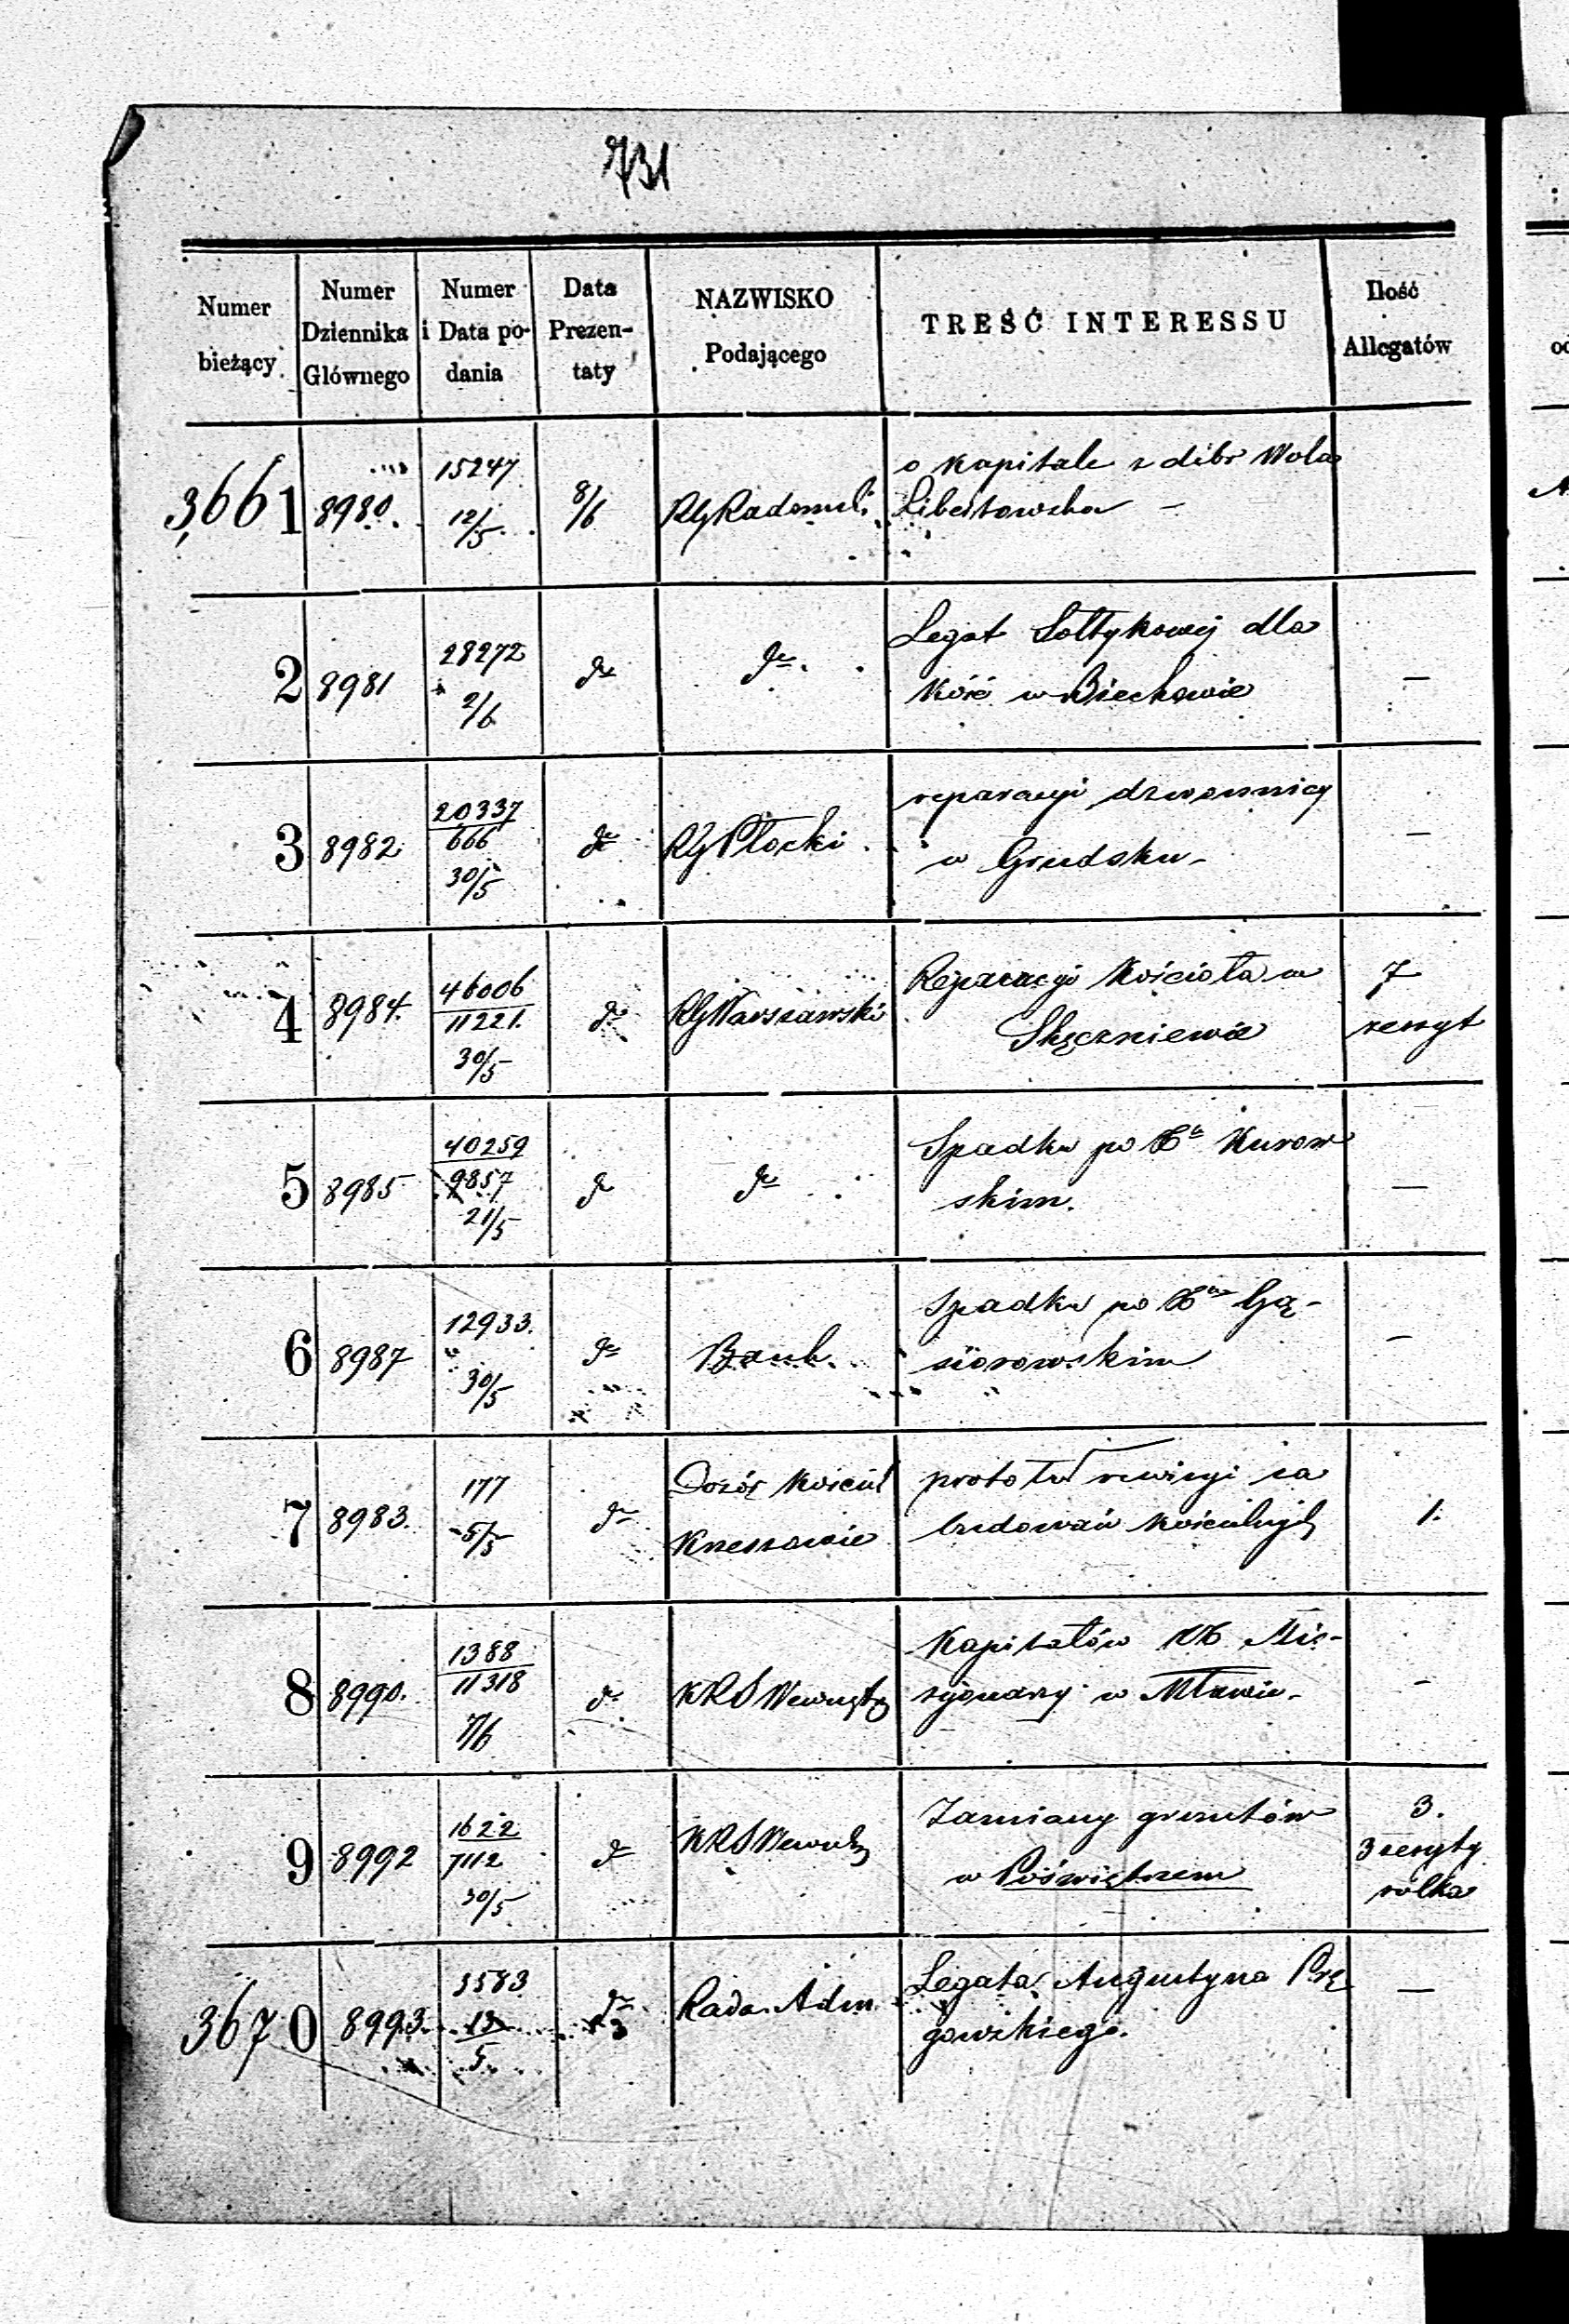 731
Numer bieżący
Numer Dziennika Głównego
Numer i Data podania
Data Prezentaty
NAZWISKO Podającego
TREŚĆ INTERESSU
Ilość Allegatów
3661 8980. 15247 12/5 8/6 RG Radomski o kapitale z dóbr Wola
Libertowska —
2 8981 28272 2/6 do do Legat Sołtykowej dla
Kość w Biechowie —
3 8982 20337/666 30/5 do RG Płocki reparacyi dzwonnicy
w Grudsku - —
4 8984. 46006/11221. 30/5 do RG Warszawski Reparacyi Kościoła w
Skęczniewie 7
zeszyt
5 8985 40259/9857 21/5 do do Spadku po Xu Kurow
skim. —
6 8987 12933. 30/5 do Bank Spadku po Xu Gą-
siorowskim —
7 8983. 177 5/5 do Dozór Kościel
Krzeszowie
rewizyi za
budowań kościelnych 1.
8 8990. 1388/11318 7/6 do KRS Wewnętrz Kapitałów XX Mis-
syonarzy w Mławie - -
9 8992 1622/7112 30/5 do KRS Wewnętrz Zamiany gruntów
w Poświętnem 3.
3 zeszyty
rólka
3670 8993. 3583 13/5 do Rada Adm. Legata Augustyna Prę
gowskiego. —